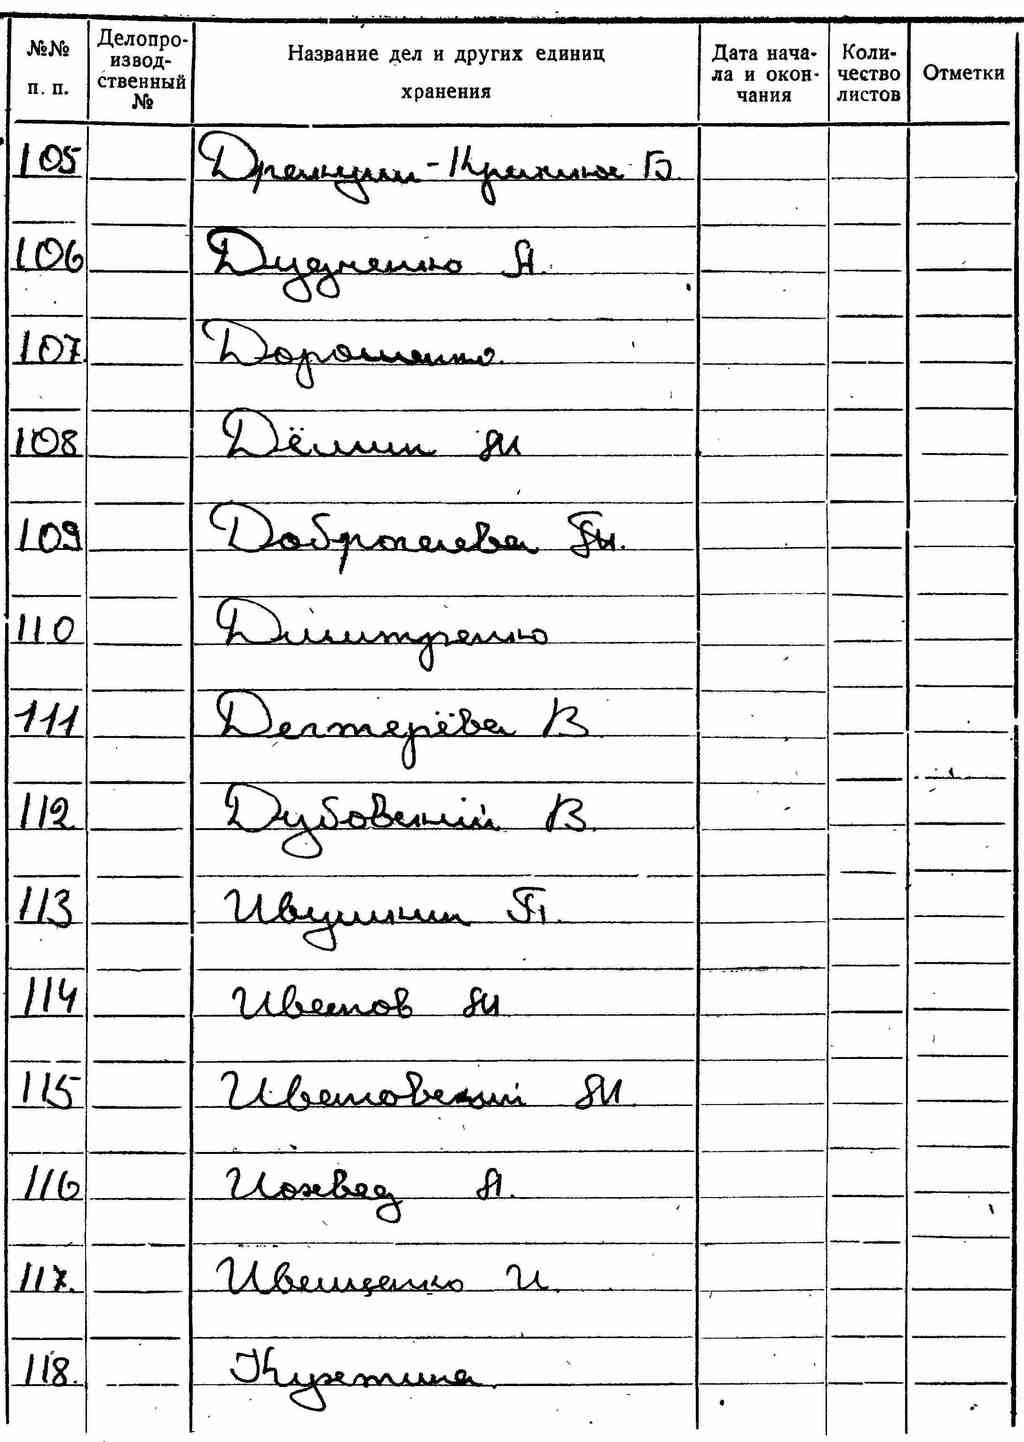 №№ п. п.
Делопроизводственный №
Название дел и других единиц хранения
Дата начала и окончания
Количество листов
Отметки
105
106 Дудченко А.
107. Дорошенко.
108 Дёмин М
109
110 Дмитренко
111 Дегтерёва В
112 Дубовский В.
113 Ивушкин П.
114 Иванов М
115 Ивановский М
116 А.
117. Иващенко И.
118.